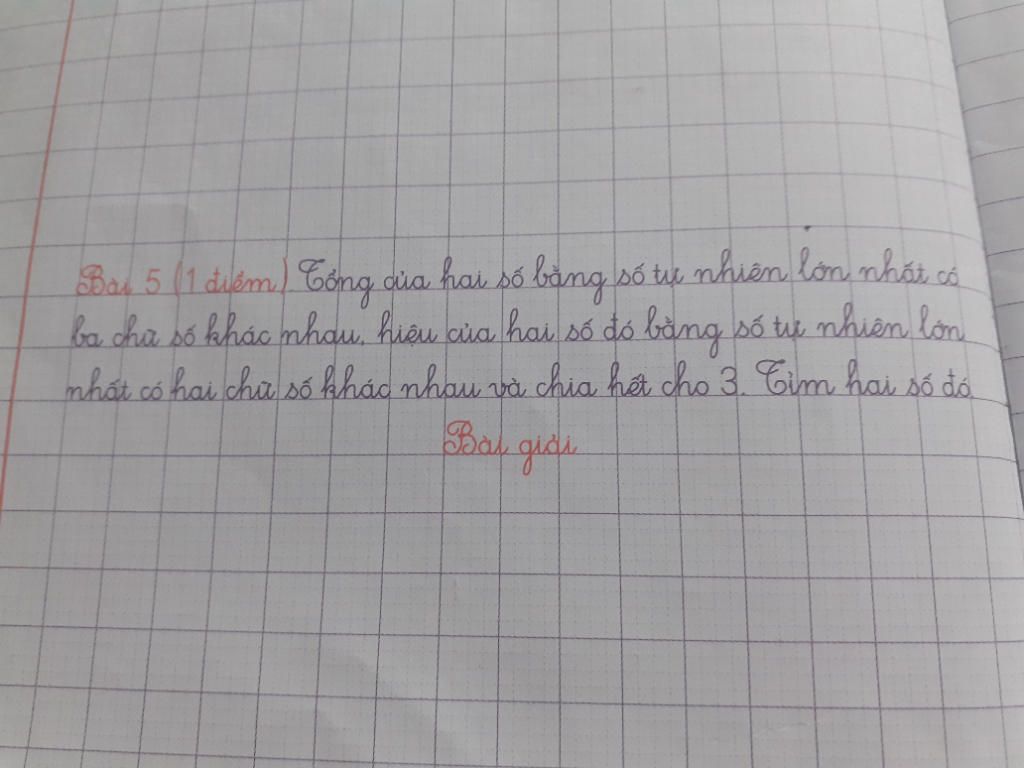 Bài 5 (1 điểm) Tổng của hai số bằng số tự nhiên lớn nhất có
ba chữ số khác nhau, hiệu của hai số đó bằng số tự nhiên lớn
nhất có hai chữ số khác nhau và chia hết cho 3. Tìm hai số đó
Bài giải